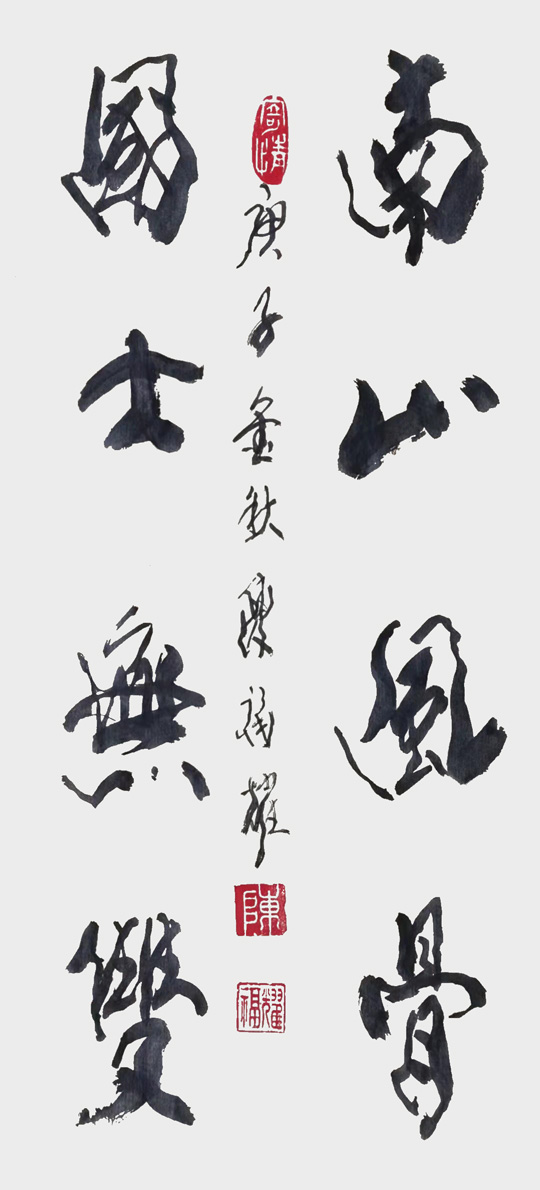 南山風骨
國士無雙
庚子金秋陳福耀
寄情
陳
福耀